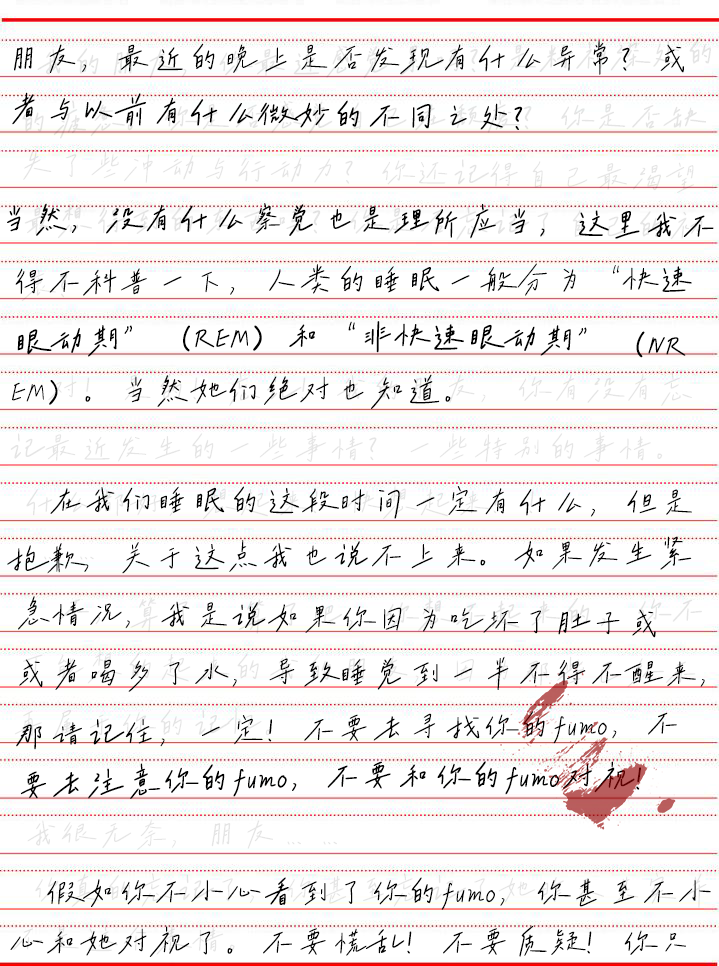 朋友，最近的晚上是否发现有什么异常？或
者与以前有什么微妙的不同之处？
你是否缺
失了些冲动与行动力？你还记得自己最渴望
当然，没有什么察觉也是理所应当，这里我不
得不科普一下，人类的睡眠一般分为“快速
眼动期”（REM）和“非快速眼动期”（NR
EM）。当然她们绝对也知道。
你有没有忘
记最近发生的一些事情？一些特别的事情。
在我们睡眠的这段时间一定有什么，但是
抱歉，关于这点我也说不上来。如果发生紧
急情况，我是说如果你因为吃坏了肚子或
或者喝多了水，导致睡觉到一半不得不醒来，
那请记住，一定！不要去寻找你的fumo，不
要去注意你的fumo，不要和你的fumo对视！
我很无奈，朋友……
假如你不小心看到了你的fumo，你甚至不小
心和她对视了。不要慌乱！不要质疑！你只